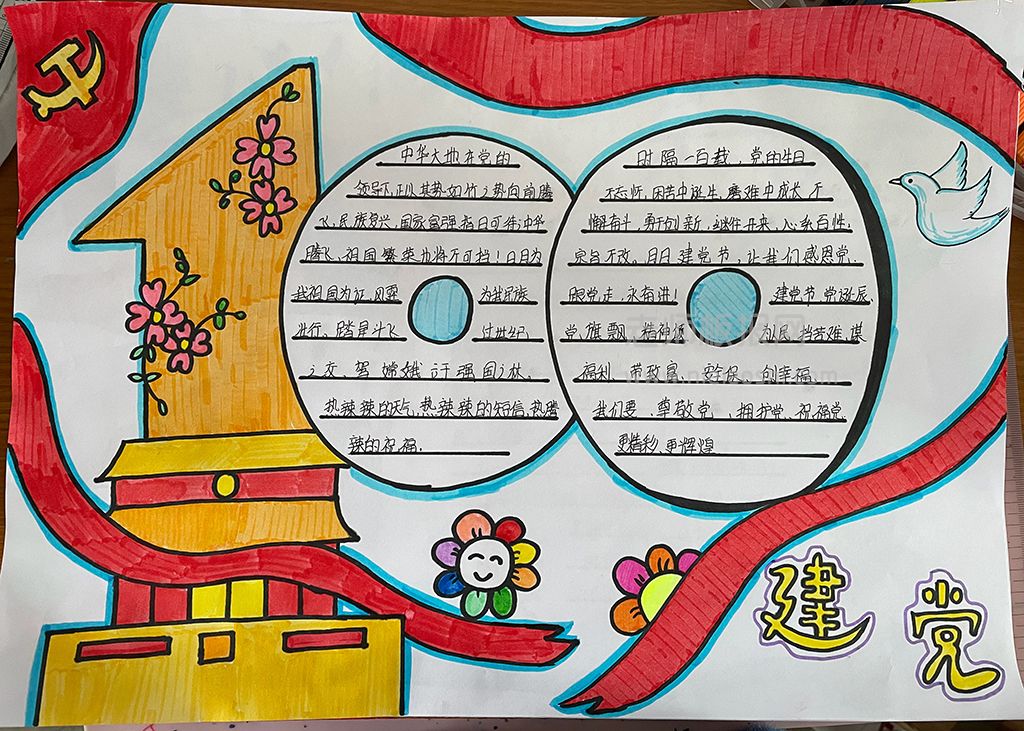 中华大地在党的
领导下,正以其势如竹之势向前腾
飞,民族复兴,国家富强指日可待;中华
腾飞,祖国繁荣也将不可挡!日月为
我祖国为证,风霜
为我民族
壮行、踏星斗飞
过世纪
之交、驾嫦娥于强国之林、
热辣辣的天气,热辣辣的短信,热腾
辣的祝福.
时隔一百载,党的生日
不忘怀,困苦中诞生,磨难中成长,不
懈奋斗,勇于创新,继往开来,心系百姓,
宗旨不改。日日建党节,让我们感恩党.
跟党走,永奋进!
建党节,党诞辰,
党旗飘,精神
为民,挡苦难,谋
福利,带致富,安全保,创幸福,
我们要,尊敬党,拥护党,祝福党
更精彩,更辉煌
建党